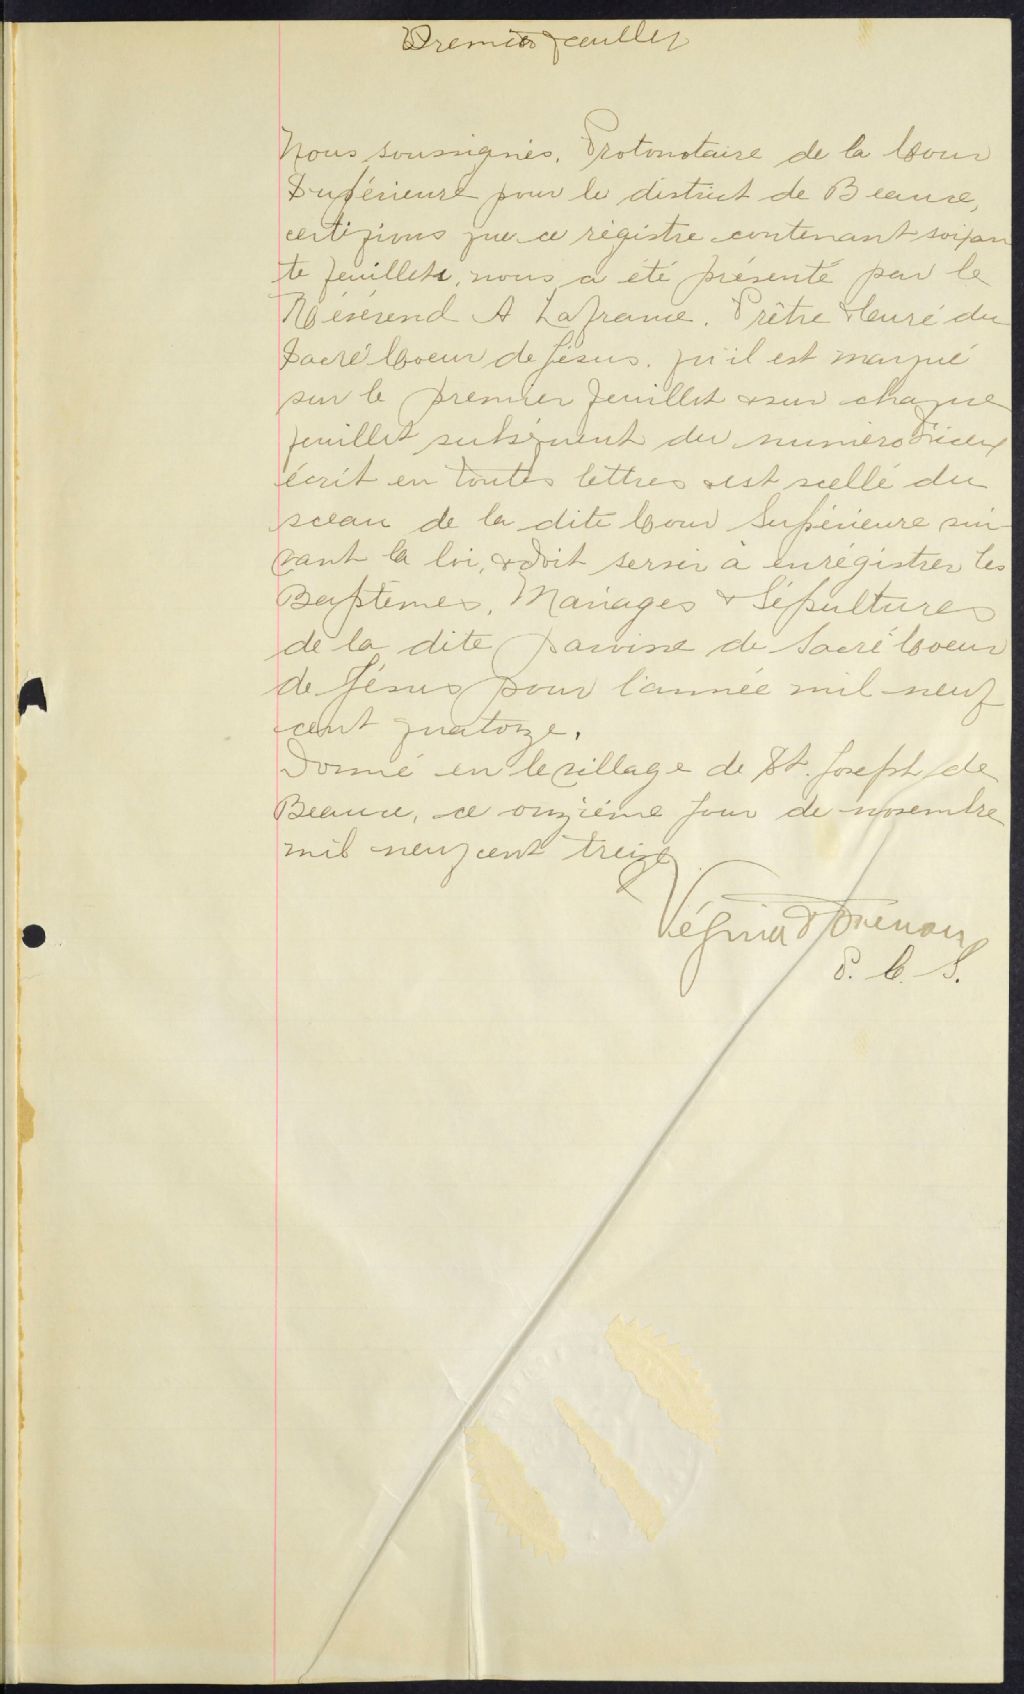 Premier feuillet
Nous soussignés, Protonotaire de la Cour
Supérieure pour le district de Beauce,
certifions que ce régistre contenant soixan
te feuillets, nous a été présenté par le
Révérend A Lafrance. Prêtre & Curé du
Sacré Coeur de Jésus. qu'il est marqué
sur le premier feuillet & sur chaque
feuillet subséquent du numéro d'iceux
écrit en toutes lettres & est scellé du
sceau de la dite Cour Supérieure sui-
vant la loi, & doit servir à enrégistrer les
Baptêmes, Mariages & Sépultures
de la dite paroisse de Sacré Coeur
de Jésus pour l'année mil neuf
cent quatorze.
Donné en le village de St. Joseph de
Beauce, ce onzième jour de novembre
mil neuf cent treize
Vézina
P. C. S.